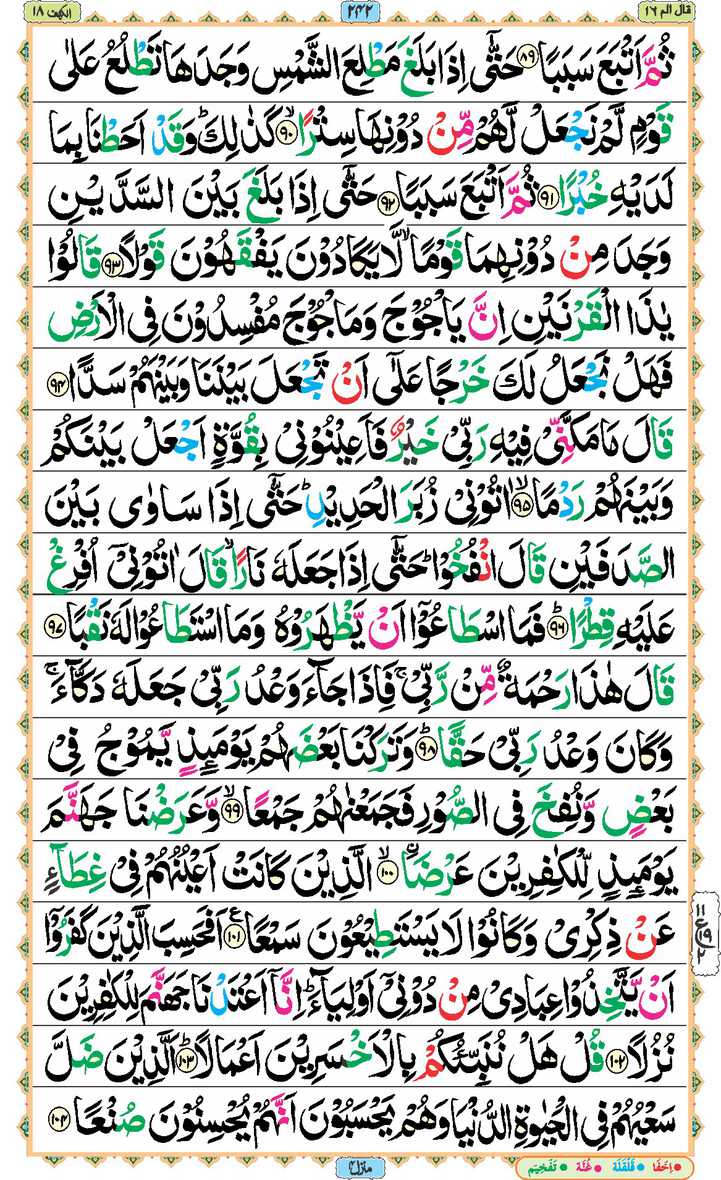 قال الم ١٦ ٢٤٢ الكهف ١٨
ثُمَّ اَتْبَعَ سَبَبًا ﴿٨٩﴾ حَتّٰۤى اِذَا بَلَغَ مَطْلِعَ الشَّمْسِ وَجَدَهَا تَطْلُعُ عَلٰى
قَوْمٍ لَّمْ نَجْعَلْ لَّهُمْ مِّنْ دُوْنِهَا سِتْرًا ﴿٩٠﴾ۙ كَذٰلِكَؕ وَقَدْ اَحَطْنَا بِمَا
لَدَيْهِ خُبْرًا ﴿٩١﴾ ثُمَّ اَتْبَعَ سَبَبًا ﴿٩٢﴾ حَتّٰۤى اِذَا بَلَغَ بَيْنَ السَّدَّيْنِ
وَجَدَ مِنْ دُوْنِهِمَا قَوْمًاۙ لَّا يَكَادُوْنَ يَفْقَهُوْنَ قَوْلًا ﴿٩٣﴾ قَالُوْا
يٰذَا الْقَرْنَيْنِ اِنَّ يَاْجُوْجَ وَمَاْجُوْجَ مُفْسِدُوْنَ فِى الْاَرْضِ
فَهَلْ نَجْعَلُ لَكَ خَرْجًا عَلٰٓى اَنْ تَجْعَلَ بَيْنَنَا وَبَيْنَهُمْ سَدًّا ﴿٩٤﴾
قَالَ مَا مَكَّنِّىْ فِيْهِ رَبِّىْ خَيْرٌ فَاَعِيْنُوْنِىْ بِقُوَّةٍ اَجْعَلْ بَيْنَكُمْ
وَبَيْنَهُمْ رَدْمًا ﴿٩٥﴾ۙ اٰتُوْنِىْ زُبَرَ الْحَدِيْدِؕ حَتّٰۤى اِذَا سَاوٰى بَيْنَ
الصَّدَفَيْنِ قَالَ انْفُخُوْاؕ حَتّٰۤى اِذَا جَعَلَهٗ نَارًاۙ قَالَ اٰتُوْنِىْۤ اُفْرِغْ
عَلَيْهِ قِطْرًا ﴿٩٦﴾ؕ فَمَا اسْطَاعُوْۤا اَنْ يَّظْهَرُوْهُ وَمَا اسْتَطَاعُوْا لَهٗ نَقْبًا ﴿٩٧﴾
قَالَ هٰذَا رَحْمَةٌ مِّنْ رَّبِّىْۚ فَاِذَا جَآءَ وَعْدُ رَبِّىْ جَعَلَهٗ دَكَّآءَۚ
وَكَانَ وَعْدُ رَبِّىْ حَقًّا ﴿٩٨﴾ؕ وَتَرَكْنَا بَعْضَهُمْ يَوْمَئِذٍ يَّمُوْجُ فِىْ
بَعْضٍ وَّنُفِخَ فِى الصُّوْرِ فَجَمَعْنٰهُمْ جَمْعًا ﴿٩٩﴾ۙ وَّعَرَضْنَا جَهَنَّمَ
يَوْمَئِذٍ لِّلْكٰفِرِيْنَ عَرْضَا ﴿١٠٠﴾ۙ الَّذِيْنَ كَانَتْ اَعْيُنُهُمْ فِىْ غِطَآءٍ
عَنْ ذِكْرِىْ وَكَانُوْا لَا يَسْتَطِيْعُوْنَ سَمْعًا ﴿١٠١﴾ اَفَحَسِبَ الَّذِيْنَ كَفَرُوْۤا
اَنْ يَّتَّخِذُوْا عِبَادِىْ مِنْ دُوْنِىْۤ اَوْلِيَآءَؕ اِنَّاۤ اَعْتَدْنَا جَهَنَّمَ لِلْكٰفِرِيْنَ
نُزُلًا ﴿١٠٢﴾ قُلْ هَلْ نُنَبِّئُكُمْ بِالْاَخْسَرِيْنَ اَعْمَالًا ﴿١٠٣﴾ؕ اَلَّذِيْنَ ضَلَّ
سَعْيُهُمْ فِى الْحَيٰوةِ الدُّنْيَا وَهُمْ يَحْسَبُوْنَ اَنَّهُمْ يُحْسِنُوْنَ صُنْعًا ﴿١٠٤﴾
اِخْفَا قَلْقَلَة غُنَّة تَفْخِيْم منزل٤